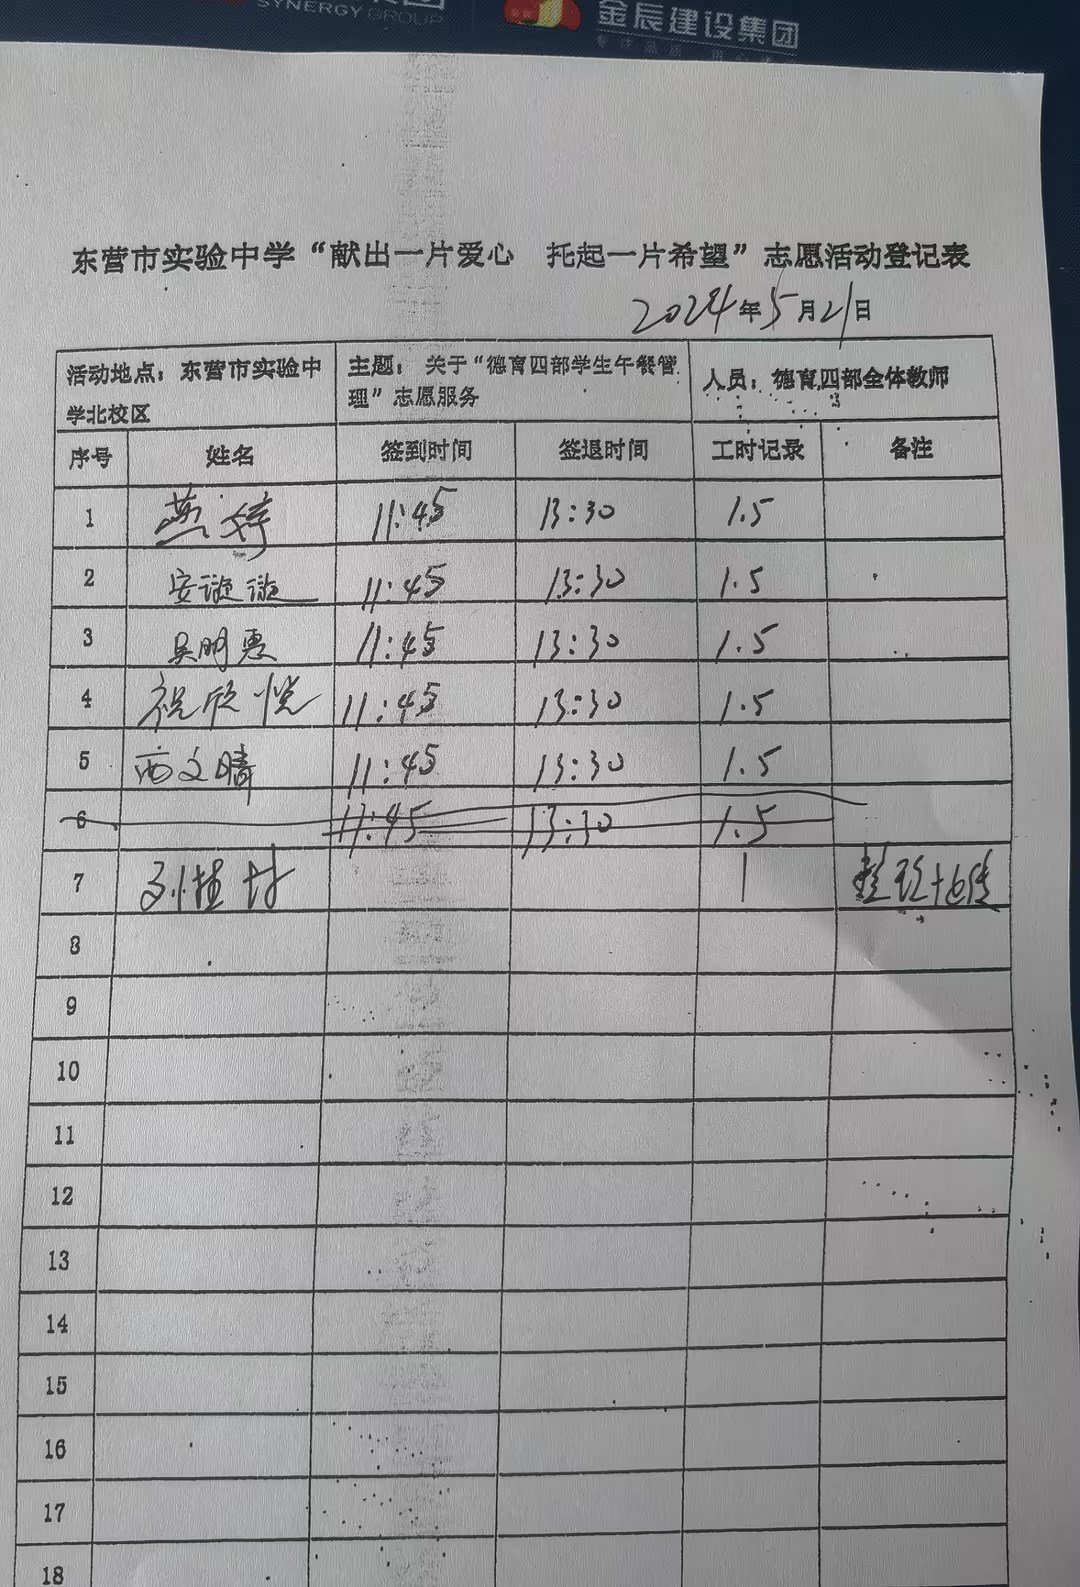 SYNERGY GROUP
金辰建设集团
东营市实验中学“献出一片爱心 托起一片希望”志愿活动登记表
2024年5月21日
活动地点：东营市实验中学北校区 主题：关于“德育四部学生午餐管理”志愿服务 人员：德育四部全体教师
序号 姓名 签到时间 签退时间 工时记录 备注
1 燕婷 11:45 13:30 1.5
2 安漩漩 11:45 13:30 1.5
3 吴明惠 11:45 13:30 1.5
4 祝欣悦 11:45 13:30 1.5
5 西文晴 11:45 13:30 1.5
6 11:45 13:30 1.5
7 1
8
9
10
11
12
13
14
15
16
17
18